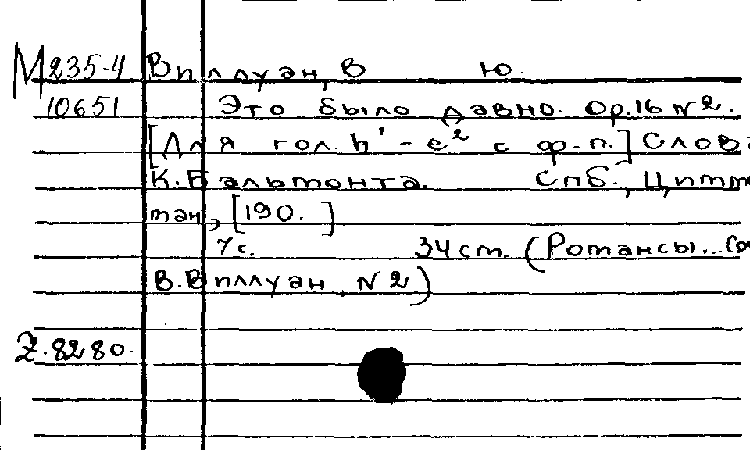 М 235-4 Виллуан, В Ю.
10651 Это было давно. Ор.16 N2.
[Для гол. h¹ - e² с ф-п.] Слова
К. Бальмонта. Спб., Цимм
ман, [190. ]
7 с. 34 см. (Романсы...
В. Виллуан, N2)
2.8280.